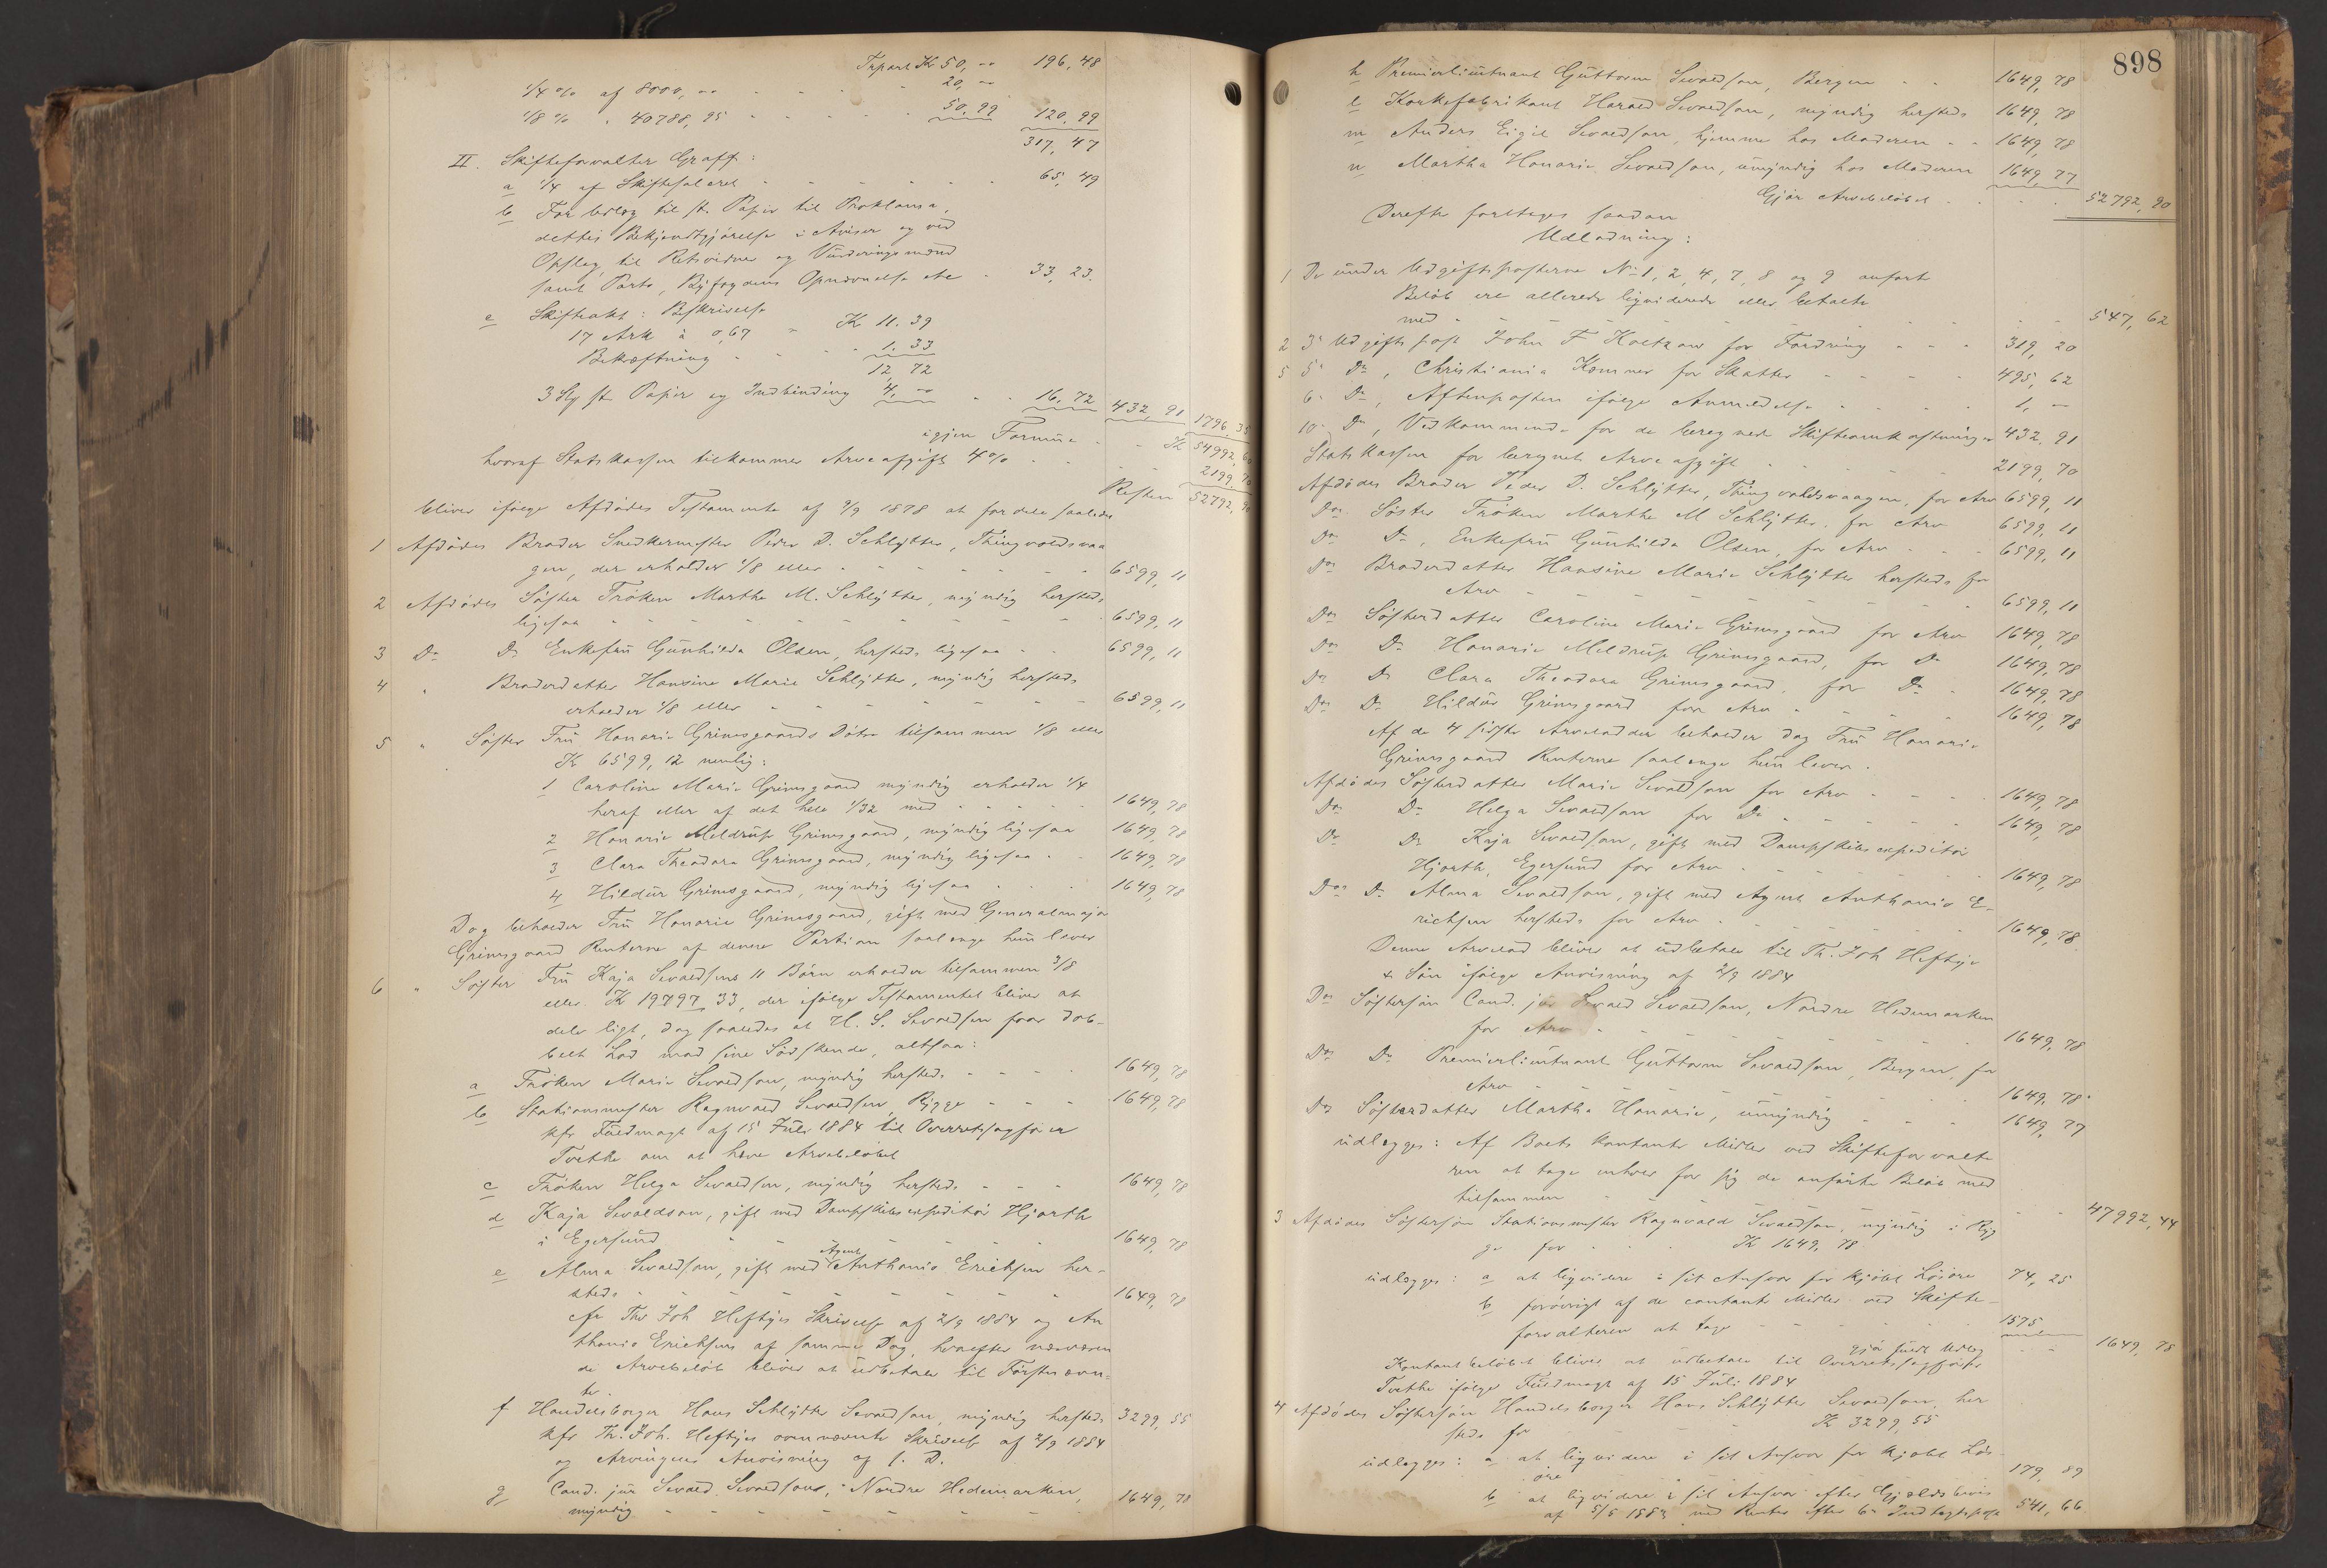 Trpart Kr 50, -- 196,48
1/4 % af 8000, -- - - - - 20, --
1/8 % " 40788,95 - - - - - 50,99 120,99
317,47
II. Skifteforvalter Graff:
a 1/4 af Skiftesaleret - - - - - 65,49
b For Udlæg til st. Papir til Proklama,
dettes Bekjendtgjørelse i Aviser og ved
Opslag, til Retsvidner og Vurderingsmænd
samt Porto, Byfogdens Opnævnelse etc - 33,23.
c Skifteakt: Beskrivelse
17 Ark à 0,67 - Kr 11.39
Bekræftning - - - - 1.33
12,72
3 Slg st. Papir og Indbinding 4, -- - - 16,72 432,91 1796,35
igjen Formue - - Kr 54992,60
hvoraf Statskassen tilkommer Arveafgift 4 % - - - 2199,70
Resten 52792,90
bliver ifølge Afdødes Testamente af 9/9 1878 at fordele saaledes
1 Afdødes Broder Snedkermester Peder D. Schlytter, Thingvoldsvaa
gen, der erholder 1/8 eller - - - - - - 6599,11
2 Afdødes Søster Frøken Marthe M. Schlytter, myndig hersteds
ligesaa - - - - - - - - 6599,11
3 Do Do Enkefru Gunhilda Olsen, hersteds ligesaa - - 6599,11
4 " Broderdatter Hansine Marie Schlytter, myndig hersteds
erholder 1/8 eller - - - - - - - 6599,11
5 " Søster Fru Hanarie Grimsgaards Døtre tilsammen 1/8 eller
Kr 6599,12 nemlig:
1 Caroline Marie Grimsgaard myndig erholder 1/4
heraf eller af det hele 1/32 med - - - - 1649,78
2 Hanarie Meldrup Grimsgaard, myndig ligesaa 1649,78
3 Clara Theodora Grimsgaard, myndig ligesaa - - 1649,78
4 Hildur Grimsgaard, myndig ligesaa - - - 1649,78
Dog beholder Fru Hanarie Grimsgaard, gift med Generalmajor
Grimsgaard Renterne af denne Portion saalænge hun lever
6 " Søster Fru Kaja Sevaldsens 11 Børn erholder tilsammen 3/8
eller Kr 19797,33, der ifølge Testamentet bliver at
dele ligt, dog saaledes at H. S. Sevaldsen faar dob-
belt Lod mod sine Sødskende, altsaa:
a Frøken Marie Sevaldsen, myndig hersteds - - - - 1649,78
b Stationsmester Ragnvald Sevaldsen, Rygge - - - 1649,78
kfr Fuldmagt af 15 Juli 1884 til Overretssagfører
Tvethe om at hæve Arvebeløbet
c Frøken Helga Sevaldsen, myndig hersteds - - - 1649,78
d Kaja Sevaldsen, gift med Dampskibsexpeditør Hjorth
i Egersund - - - - - - 1649,78
e Alma Sevaldsen, gift med Agent Anthonio Erichsen her-
steds - - - - - - - - - 1649,78
cfr Ths Joh Heftyes Skrivelse af 2/9 1884 og An
thonio Erichsens af samme Dag, hvorefter nævnæren
de Arvebeløb bliver at udbetale til Førstnævn-
te.
f Handelsborger Hans Schlytter Sevaldsen, myndig hersteds 3299,55
kfr Th. Joh. Heftyes ovennævnte Skrivelse af 2/9 1884
og Arvingens Anvisning af s. D.
g Cand. jur Sevald Sevaldsen, Nordre Hedemarken,
myndig - - - - - - - - 1649,78
898
h Premierlieutnant Guttorm Sevaldsen, Bergen - - 1649,78
l Korkefabrikant Harald Sevaldsen, myndig hersteds 1649,78
m Anders Eigil Sevaldsen, hjemme hos Moderen - - 1649,78
n Martha Hanarie Sevaldsen, umyndig hos Moderen 1649,77
Gjør Arvebeløbet - - - - 52792,90
Derefter foretages saadan
Udlodning:
1 De under Udgiftsposterne No 1, 2, 4, 7, 8 og 9 anførte
Beløb ere allerede ligviderede eller betalte
med - - - - - - - - - 547,62
2 3' Udgiftspost John F Holtzow for Fordring - - - 319,20
5 5' Do, Christiania Kommune for Skatter - - - - 495,62
6' Do, Aftenposten ifølge Anmeldelse - - - - 1, --
10' Do, Vedkommende for de beregnede Skifteomkostninger 432,91
Statskassen for beregnet Arveafgift - - - - 2199,70
Afdødes Broder Peder D. Schlytter, Thingvoldsvaagen, for Arv 6599,11
Dos Søster Frøken Marthe M Schlytter, for Arv 6599,11
Dos Do, Enkefru Gunhilda Olsen, for Arv - - - 6599,11
Dos Broderdatter Hansine Marie Schlytter hersteds for
Arv - - - - - - - - - 6599,11
Dos Søsterdatter Caroline Marie Grimsgaard for Arv 1649,78
Dos Do Hanarie Meldrup Grimsgaard, for Do 1649,78
Dos Do Clara Theodora Grimsgaard, for Do - 1649,78
Dos Do Hildur Grimsgaard for Arv - - - - 1649,78
Af de 4 sidste Arvelodder beholder dog Fru Hanarie
Grimsgaard Renterne saalænge hun lever.
Afdødes Søsterdatter Marie Sevaldsen for Arv - - - 1649,78
Dos Do Helga Sevaldsen for Do - - - - - 1649,78
Do Do Kaja Sevaldsen, gift med Dampskibsexpeditør
Hjorth, Egersund for Arv - - - - - - 1649,78
Dos Do Alma Sevaldsen, gift med Agent Anthonio E-
richsen hersteds for Arv - - - - - - 1649,78
Denne Arvelod bliver at udbetale til Th. Joh Heftye
& Søn ifølge Anvisning af 2/9 1884
Dos Søstersøn Cand. jur Sevald Sevaldsen, Nordre Hedemarken
for Arv - - - - - - - - 1649,78
Dos Do Premierlieutnant Guttorm Sevaldsen, Bergen, for
Arv - - - - - - - - 1649,78
Dos Søsterdatter Martha Hanarie, umyndig - - - 1649,77
udlægges: Af Boets kontante Midler ved Skifteforvalte
ren at tage enhver for sig de anførte Beløb med
tilsammen - - - - - - - - - 47992,44
3 Afdødes Søstersøn Stationsmester Ragnvald Sevaldsen, myndig i Ryg
ge for - - - Kr 1649,78
udlægges: a at ligvidere i sit Ansvar for kjøbt Løsøre 74,25
b forøvrigt af de contante Midler ved Skifte-
forvalteren at tage - - - - - 1575
gjør fuldt Udlæg - - 1649,78
Kontantbeløbet bliver at udbetale til Overretssagfører
Tvethe ifølge Fuldmagt af 15 Juli 1884
4 Afdødes Søstersøn Handelsborger Hans Schlytter Sevaldsen, her
steds for - - - - Kr 3299,55
udlægges: a at ligvidere i sit Ansvar for kjøbt Løs-
øre - - - - - - - 179,89
b at ligvidere i sit Ansvar efter Gjældsbevis
af 5/5 1883 med Renter efter 6' Indtægtspost 541,66